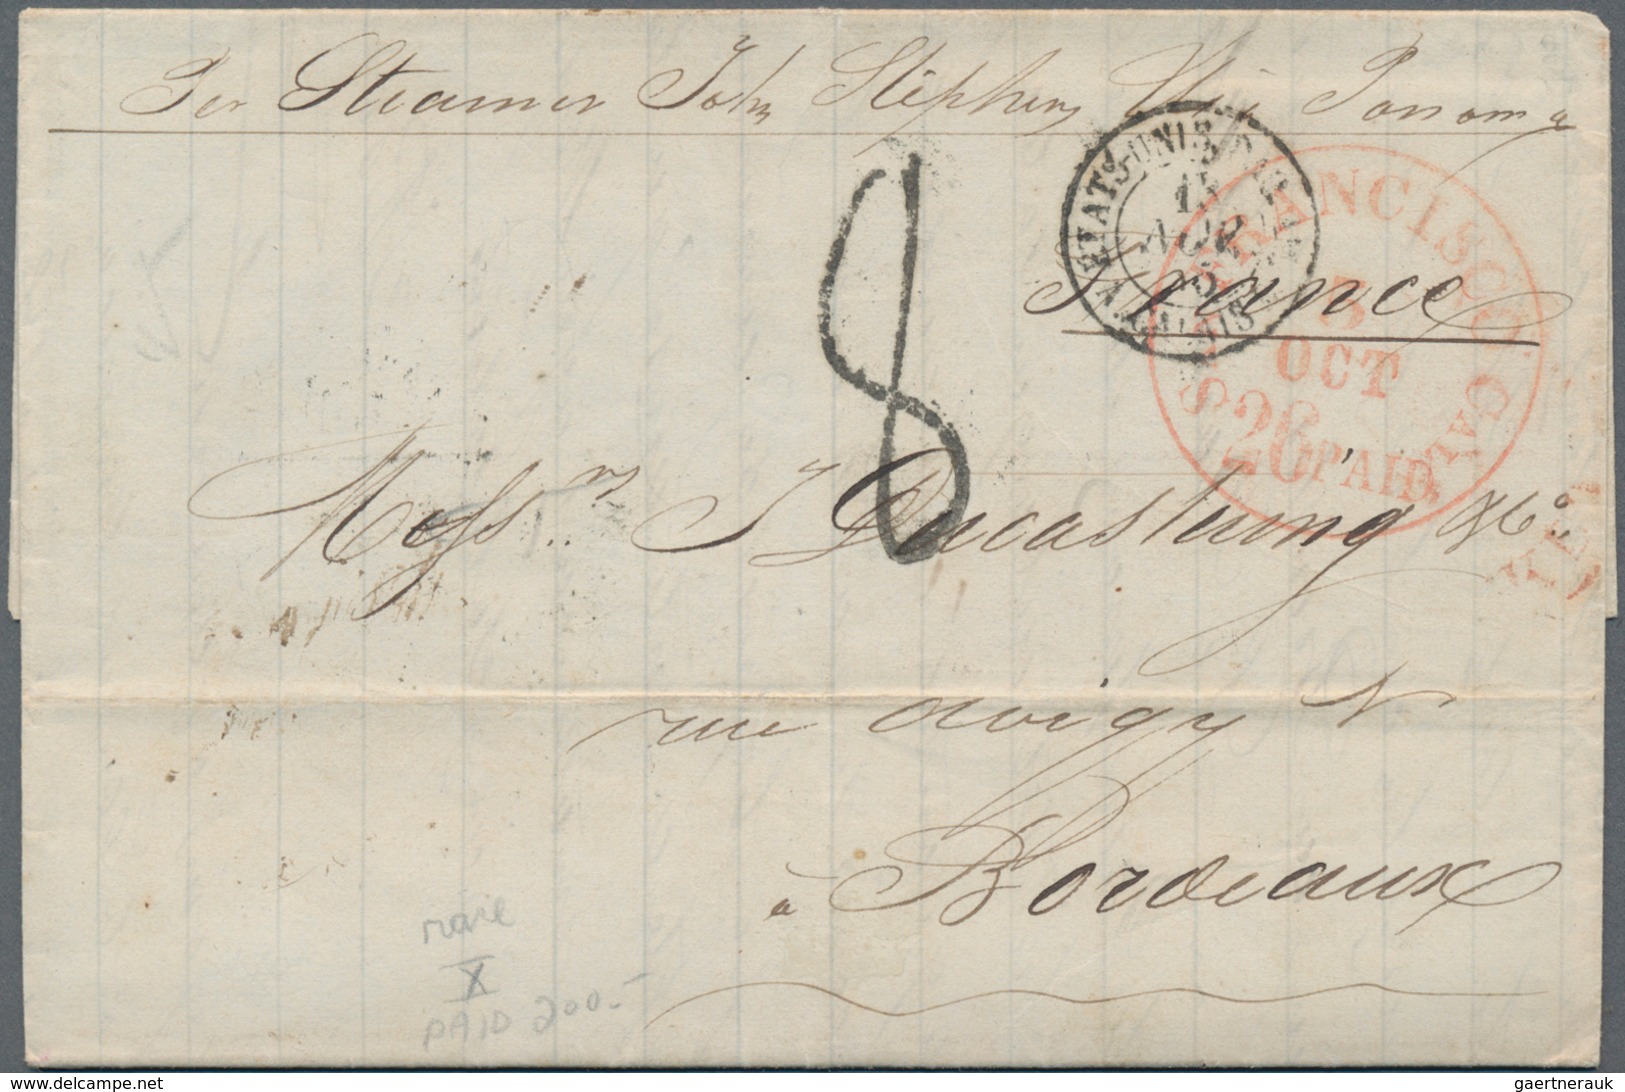 Per Steamer John Stephens Via Panama
ETATS-UNIS
15
V. CALAIS
SAN FRANCISCO CAL.
3
OCT
26 PAID
France
8
Mess.rs J Ducastaing & Co.
rue
à Bordeaux
rare
X
PAID 200.-
delcampe.net
gaertnerauk